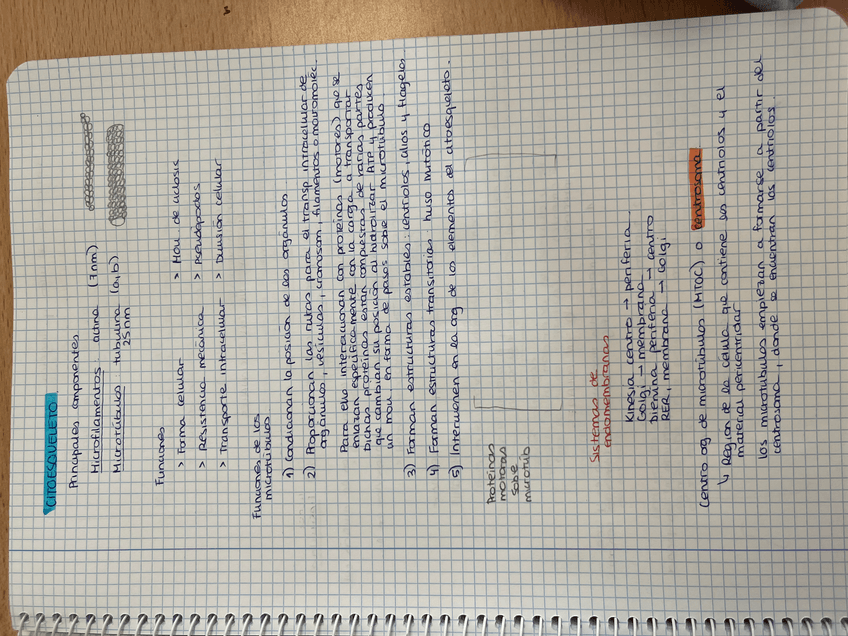 CITOESQUELETO
Principales componentes
Microfilamentos: actina (7nm)
Microtúbulos tubulina (a,b)
25nm
Funciones
> Forma celular > Mov. de ciclosis
> Resistencia mecánica > Pseudópodos
> Transporte intracelular > División celular
Funciones de los
microtúbulos
1) Condicionan la posición de los orgánulos
2) Proporcionan las rutas para el transp intracelular de
orgánulos, vesículas, cromosom, filamentos o macromoléc.
Para ello interaccionan con proteínas (motores) que se
enlazan específicamente con la carga a transportar
Dichas proteínas están compuestas de varias partes
que cambian su posición al hidrolizar ATP y producen
un mov en forma de pasos sobre el microtúbulo
3) Forman estructuras estables: centriolos, cilios y flagelos
4) Forman estructuras transitorias: huso mitótico
5) Intervienen en la org de los elementos el citoesqueleto.
Proteínas
motoras
sobe
microtúb
Sistemas de
endomembranas
Kinesia centro → periferia
Golgi → membrana
Dieneina periferia → centro
RER, membrana → Golgi
Centro org de microtúbulos (MTOC) o centrosoma
↳ Región de la célula que contiene los centriolos y el
material pericentriolar
Los microtúbulos empiezan a formarse a partir del
centrosoma, donde se encuentran los centriolos.